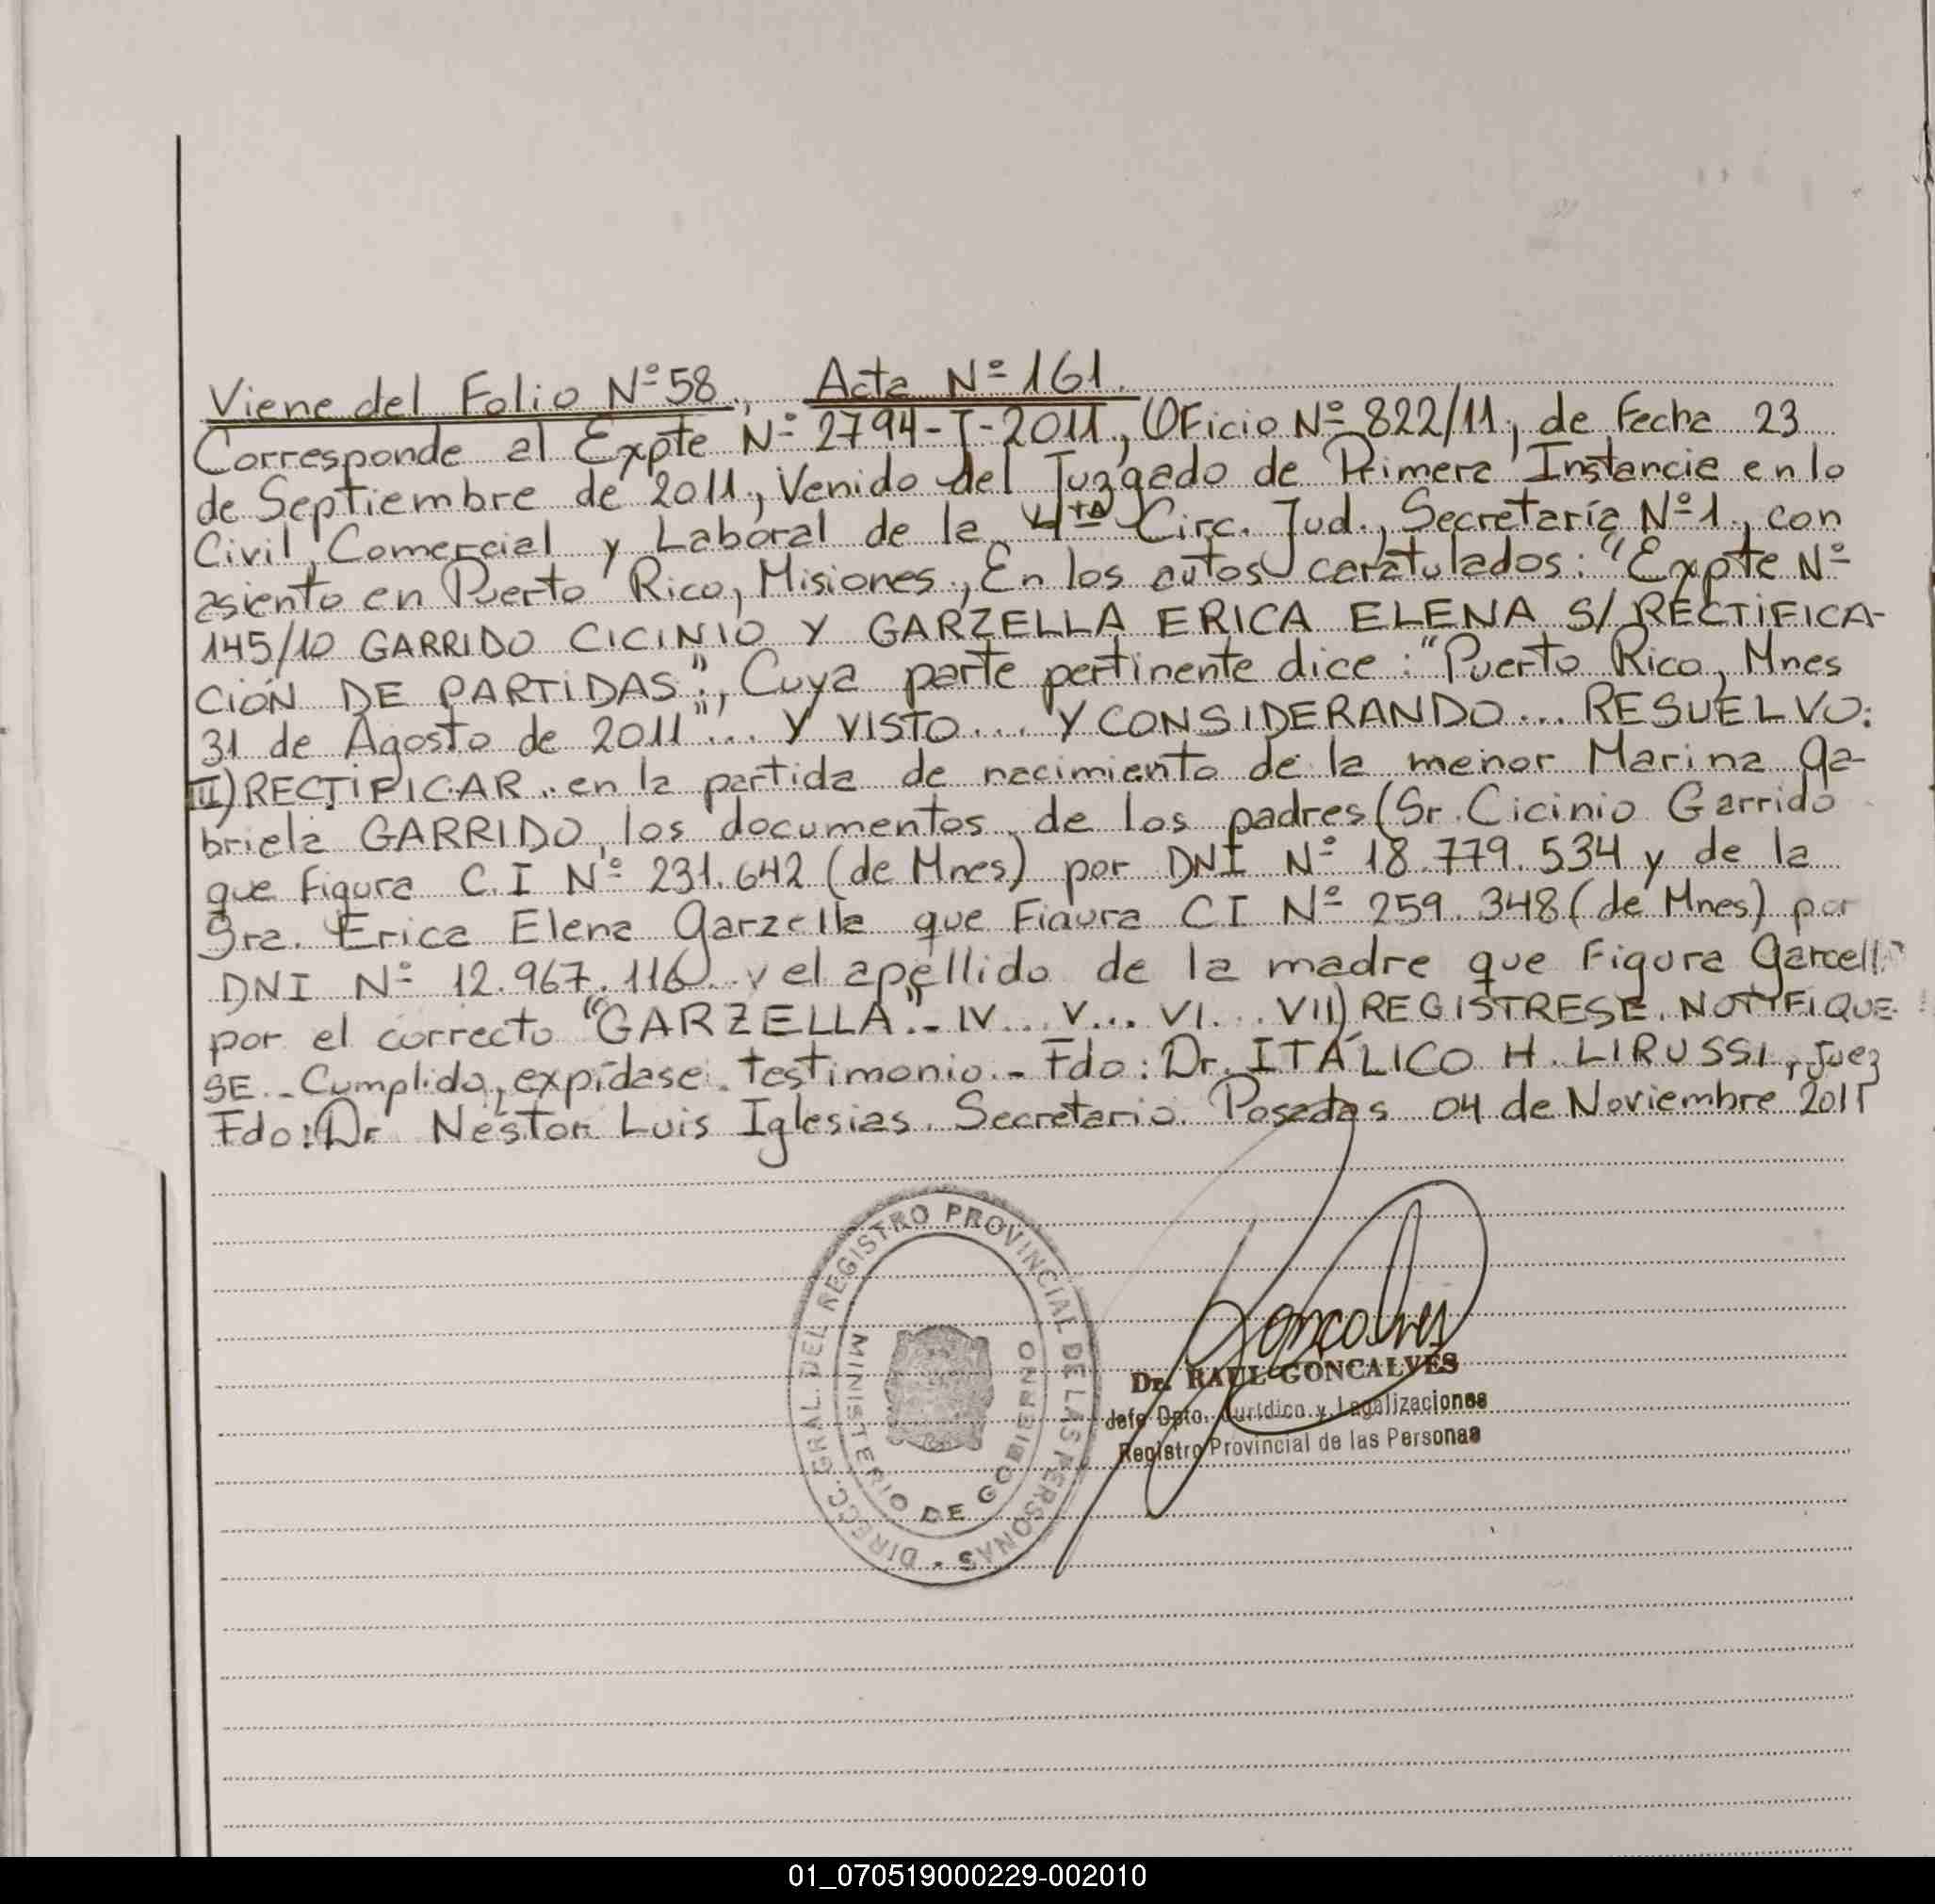 Viene del Folio Nº 58., Acta Nº 161.
Corresponde al Expte Nº 2794-J-2011, Oficio Nº 822/11, de Fecha 23
de Septiembre de 2011, Venido del Juzgado de Primera Instancia en lo
Civil, Comercial y Laboral de la 4ta Circ. Jud., Secretaría Nº 1, con
asiento en Puerto Rico, Misiones, En los autos caratulados: "Expte Nº
145/10 GARRIDO CICINIO Y GARZELLA ERICA ELENA S/ RECTIFICA-
CION DE PARTIDAS", Cuya parte pertinente dice: "Puerto Rico, Mnes
31 de Agosto de 2011"... Y VISTO.... Y CONSIDERANDO... RESUELVO:
III) RECTIFICAR.. en la partida de nacimiento de la menor Marina Ga-
briela GARRIDO, los documentos de los padres (Sr. Cicinio Garrido
que Figura C.I Nº 231.642 (de Mnes) por DNI Nº 18.779.534 y de la
Sra. Erica Elena Garzella que Figura CI Nº 259.348 (de Mnes) por
DNI Nº 12.967.116... y el apellido de la madre que Figura Garcella
por el correcto "GARZELLA".- IV... V... VI... VII) REGISTRESE. NOTIFIQUE-
SE.- Cumplido, expídase testimonio.- Fdo: Dr. ITÁLICO H. LIRUSSI, Juez
Fdo: Dr Néstor Luis Iglesias. Secretario. Posadas 04 de Noviembre 2011
DIRECC. GRAL. DEL REGISTRO PROVINCIAL DE LAS PERSONAS
MINISTERIO DE GOBIERNO
Goncalves
Dr. RAUL GONCALVES
Jefe Dpto. Jurídico y Legalizaciones
Registro Provincial de las Personas
01_070519000229-002010